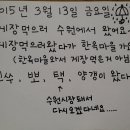 2015년 3월 13일 금요일
게장먹으러 수원에서 왔어요~
게장먹으러왔다가 한옥마을 가요
(한옥마을와서 게장먹은거 아님)
쑤.뽀.택. 양갱이 왔다
수원시장돼서
다시오겠다네요....